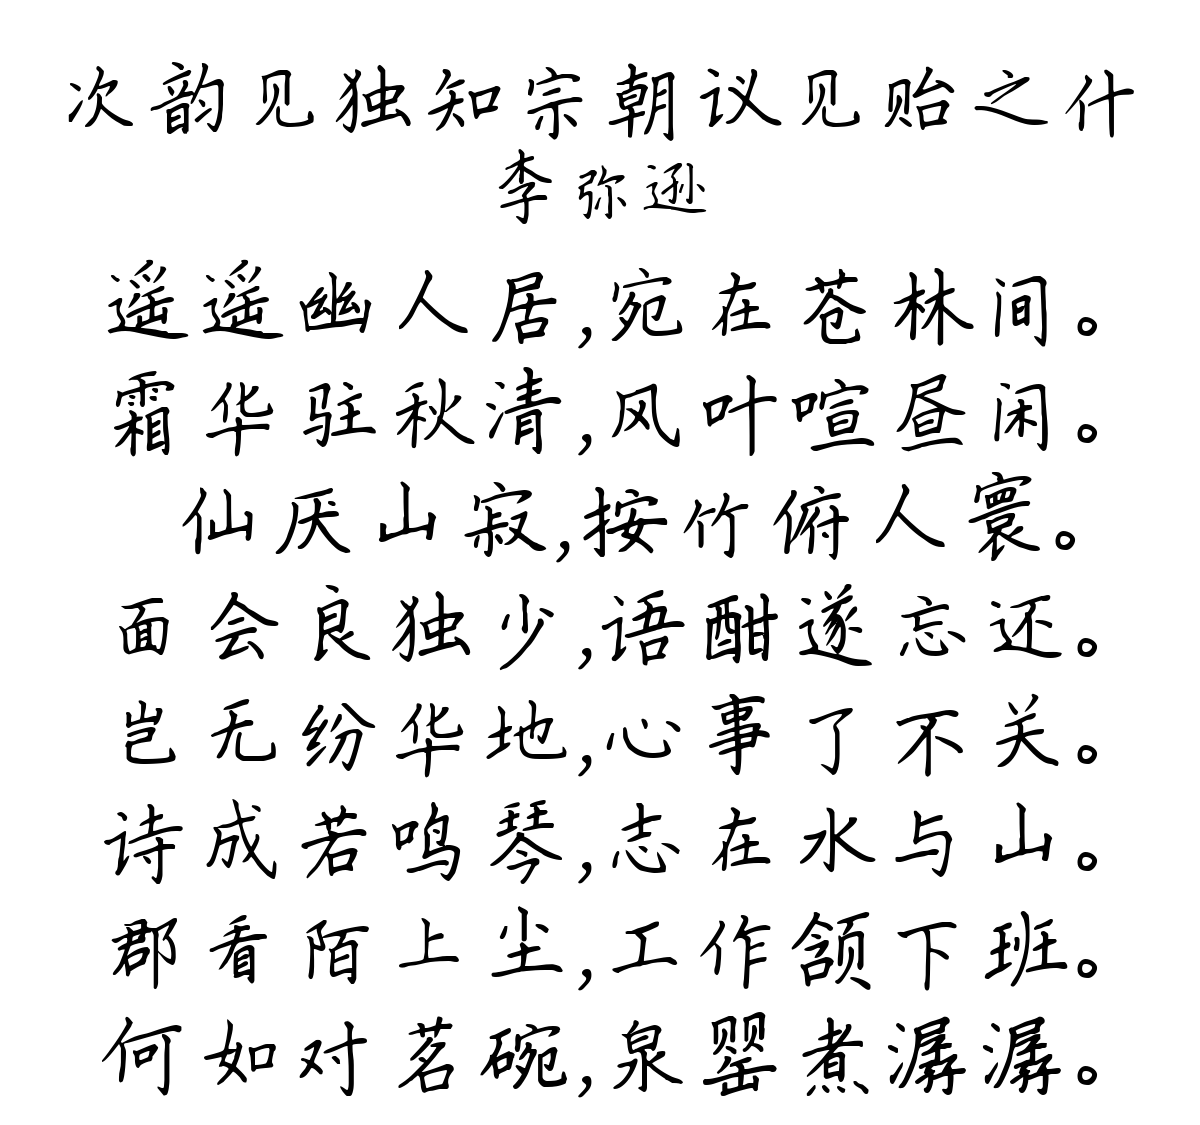 次韵见独知宗朝议见贻之什
李弥逊
遥遥幽人居,宛在苍林间。
霜华驻秋清,风叶喧昼闲。
仙厌山寂,按竹俯人寰。
面会良独少,语酣遂忘还。
岂无纷华地,心事了不关。
诗成若鸣琴,志在水与山。
郡看陌上尘,工作颔下班。
何如对茗碗,泉罂煮潺潺。